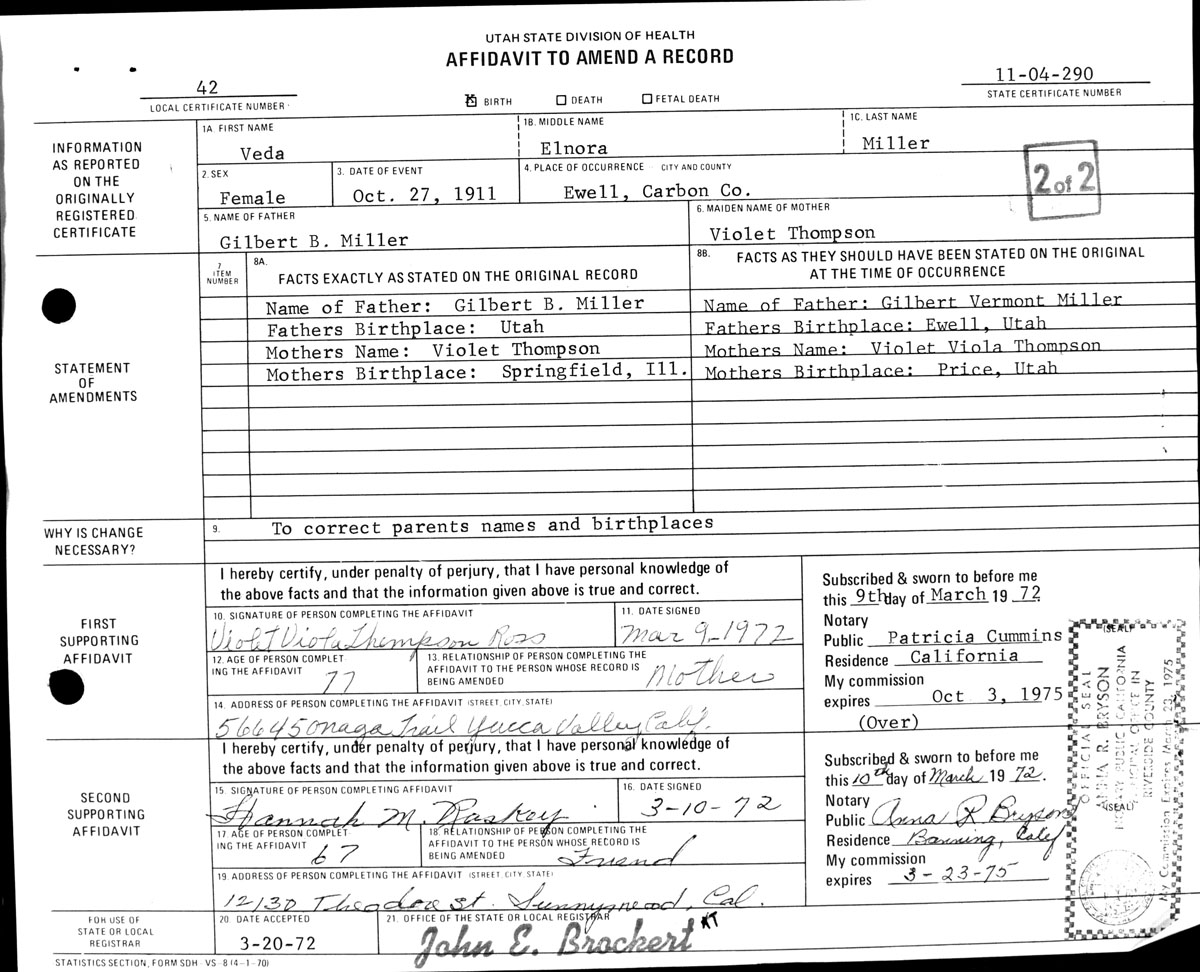 UTAH STATE DIVISION OF HEALTH
AFFIDAVIT TO AMEND A RECORD
42
LOCAL CERTIFICATE NUMBER
☒ BIRTH ☐ DEATH ☐ FETAL DEATH
11-04-290
STATE CERTIFICATE NUMBER
INFORMATION
AS REPORTED
ON THE
ORIGINALLY
REGISTERED
CERTIFICATE
1A. FIRST NAME
Veda
1B. MIDDLE NAME
Elnora
1C. LAST NAME
Miller
2. SEX
Female
3. DATE OF EVENT
Oct. 27, 1911
4. PLACE OF OCCURRENCE CITY AND COUNTY
Ewell, Carbon Co.
2 of 2
5. NAME OF FATHER
Gilbert B. Miller
6. MAIDEN NAME OF MOTHER
Violet Thompson
STATEMENT
OF
AMENDMENTS
7
ITEM
NUMBER
8A.
FACTS EXACTLY AS STATED ON THE ORIGINAL RECORD
8B. FACTS AS THEY SHOULD HAVE BEEN STATED ON THE ORIGINAL
AT THE TIME OF OCCURRENCE
Name of Father: Gilbert B. Miller
Name of Father: Gilbert Vermont Miller
Fathers Birthplace: Utah
Fathers Birthplace: Ewell, Utah
Mothers Name: Violet Thompson
Mothers Name: Violet Viola Thompson
Mothers Birthplace: Springfield, Ill.
Mothers Birthplace: Price, Utah
WHY IS CHANGE
NECESSARY?
9. To correct parents names and birthplaces
FIRST
SUPPORTING
AFFIDAVIT
I hereby certify, under penalty of perjury, that I have personal knowledge of
the above facts and that the information given above is true and correct.
10. SIGNATURE OF PERSON COMPLETING THE AFFIDAVIT
Violet Viola Thompson Ross
11. DATE SIGNED
Mar 9-1972
12. AGE OF PERSON COMPLET
ING THE AFFIDAVIT
77
13. RELATIONSHIP OF PERSON COMPLETING THE
AFFIDAVIT TO THE PERSON WHOSE RECORD IS
BEING AMENDED
Mother
14. ADDRESS OF PERSON COMPLETING THE AFFIDAVIT (STREET, CITY, STATE)
56645 Onaga Trail Yucca Valley, Calif.
Subscribed & sworn to before me
this 9th day of March 19 72
Notary
Public Patricia Cummins
Residence California
My commission
expires Oct 3, 1975
(Over)
SECOND
SUPPORTING
AFFIDAVIT
I hereby certify, under penalty of perjury, that I have personal knowledge of
the above facts and that the information given above is true and correct.
15. SIGNATURE OF PERSON COMPLETING AFFIDAVIT
Hannah M. Raskey
16. DATE SIGNED
3-10-72
17. AGE OF PERSON COMPLET
ING THE AFFIDAVIT
67
18. RELATIONSHIP OF PERSON COMPLETING THE
AFFIDAVIT TO THE PERSON WHOSE RECORD IS
BEING AMENDED
Friend
19. ADDRESS OF PERSON COMPLETING THE AFFIDAVIT (STREET, CITY, STATE)
12130 Theodore St. Sunnymead, Cal.
Subscribed & sworn to before me
this 10th day of March 19 72.
Notary
Public Anna R Bryson
Residence Banning, Calif
My commission
expires 3-23-75
(SEAL)
OFFICIAL SEAL
ANNA R. BRYSON
NOTARY PUBLIC CALIFORNIA
PRINCIPAL OFFICE IN
RIVERSIDE COUNTY
My Commission Expires March 23, 1975
(SEAL)
FOR USE OF
STATE OR LOCAL
REGISTRAR
20. DATE ACCEPTED
3-20-72
21. OFFICE OF THE STATE OR LOCAL REGISTRAR
John E. Brockert
STATISTICS SECTION, FORM SDH - VS - 8 (4-1-70)